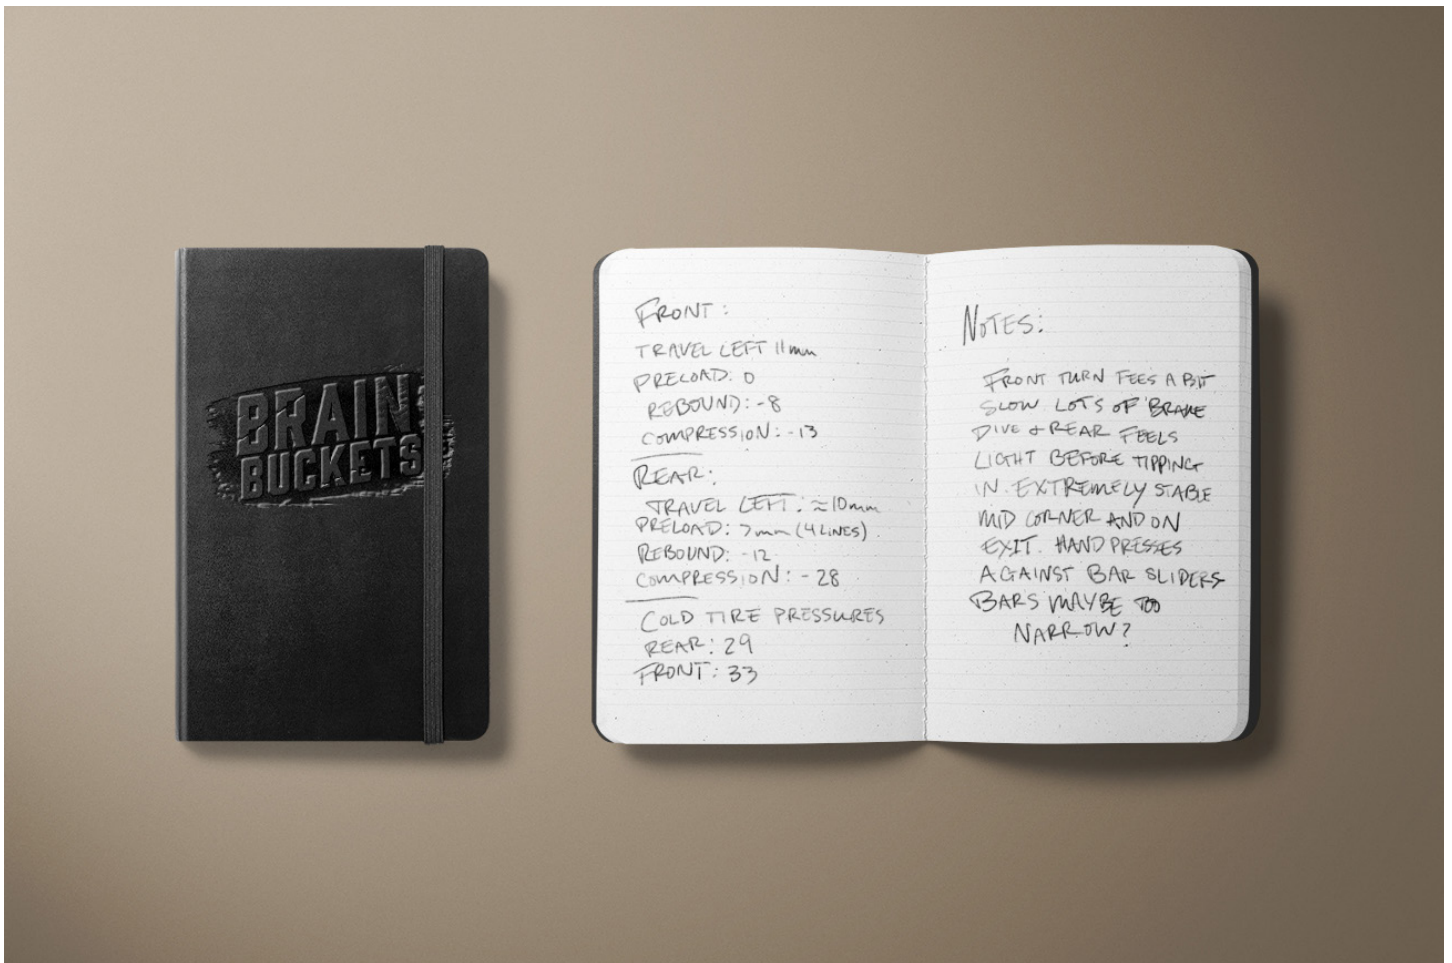 BRAIN
BUCKETS
FRONT:
TRAVEL LEFT 11mm
PRELOAD: 0
REBOUND: -8
COMPRESSION: -13
REAR:
TRAVEL LEFT: ≈10mm
PRELOAD: 7mm (4 LINES)
REBOUND: -12
COMPRESSION: -28
COLD TIRE PRESSURES
REAR: 29
FRONT: 33
NOTES:
FRONT TURN FEES A BIT
SLOW LOTS OF BRAKE
DIVE & REAR FEELS
LIGHT BEFORE TIPPING
IN. EXTREMELY STABLE
MID CORNER AND ON
EXIT. HAND PRESSES
AGAINST BAR SLIDERS
BARS MAYBE TOO
NARROW?